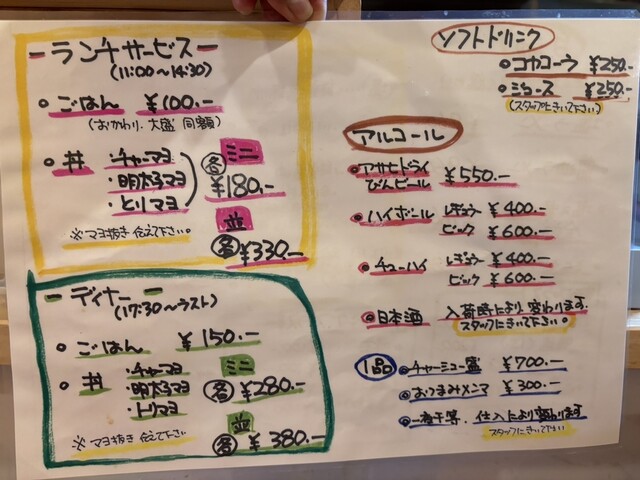 ランチサービス
(11:00〜14:30)
ごはん ¥100.-
(おかわり、大盛 同額)
丼 ・チャーマヨ
・明太子マヨ
・とりマヨ
各 ミニ ¥180.-
並 各 ¥330.-
※マヨ抜き 伝えて下さい。
ディナー
(17:30〜ラスト)
ごはん ¥150.-
丼 ・チャーマヨ
・明太子マヨ
・トリマヨ
ミニ 各 ¥280.-
並 各 ¥380.-
※マヨ抜き 伝えて下さい
ソフトドリンク
コカコーラ ¥250.-
ジュース ¥250.-
(スタッフにきいて下さい)
アルコール
アサヒドライ
びんビール ¥550.-
ハイボール レギュラー ¥400.-
ビック ¥600.-
チューハイ レギュラー ¥400.-
ビック ¥600.-
日本酒 入荷時により、変わります。
スタッフにきいて下さい。
1品
チャーシュー盛 ¥700.-
おつまみメンマ ¥300.-
一夜干等、仕入により変わります
スタッフにきいて下さい